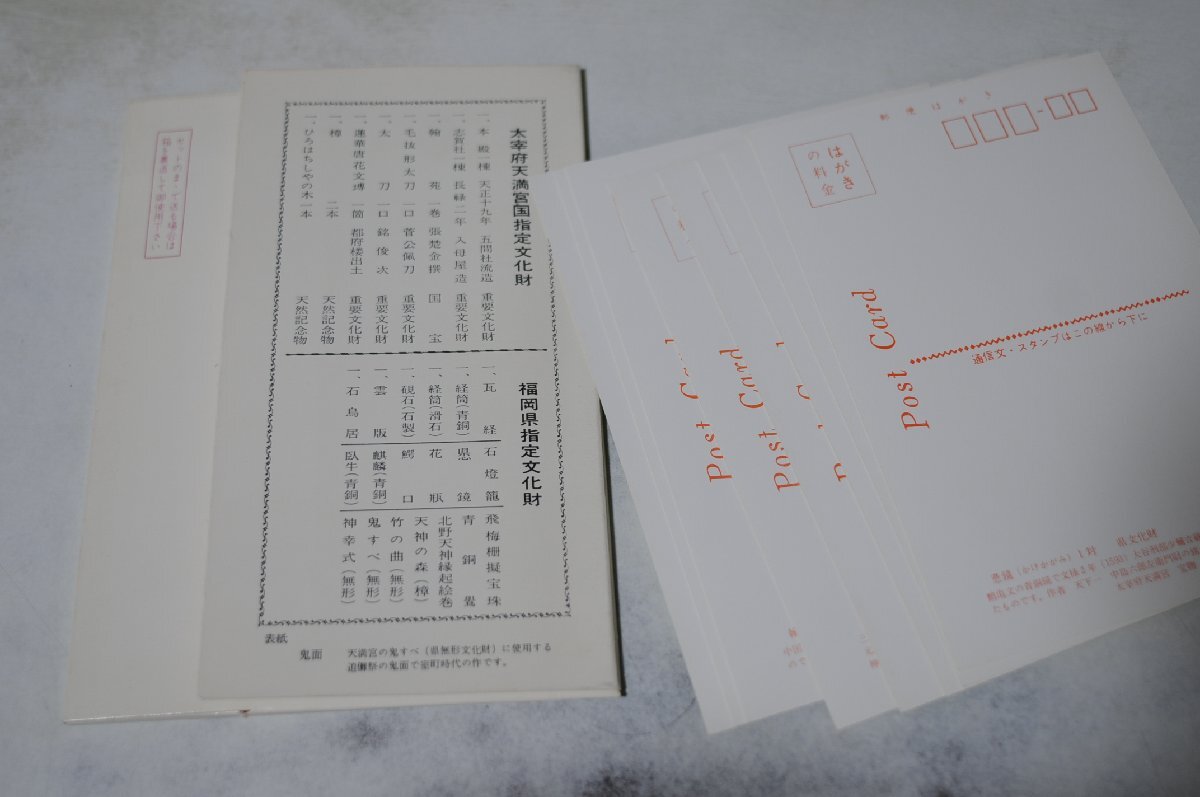 セットのまゝで送る場合は
箱を裏返して御使用下さい
太宰府天満宮国指定文化財
一、本殿一棟 天正十九年 五間社流造 重要文化財
一、志賀社一棟 長禄二年 入母屋造 重要文化財
一、翰苑一巻 張楚金撰 国宝
一、毛抜形太刀 一口 菅公佩刀 重要文化財
一、太刀 一口 銘俊次 重要文化財
一、蓮華唐花文塼 一箇 都府楼出土 重要文化財
一、樟 二本 天然記念物
一、ひろはちしやの木 一本 天然記念物
福岡県指定文化財
一、瓦経 石燈籠 飛梅柵擬宝珠
一、経筒(青銅) 懸鏡 青銅鷽
一、経筒(滑石) 花瓶 北野天神縁起絵巻
一、硯石(石製) 鰐口 天神の森(樟)
一、雲版 麒麟(青銅) 竹の曲(無形)
一、石鳥居 臥牛(青銅) 鬼すべ(無形)
神幸式(無形)
表紙
鬼面 天満宮の鬼すべ(県無形文化財)に使用する
追儺祭の鬼面で室町時代の作です。
郵便はがき
はがき
の料金
Post Card
通信文・スタンプはこの線から下に
懸鏡(かけかがみ)1対 県文化財
たものです。作者 天下一
太宰府天満宮 宝物
Post Card
Post
中国